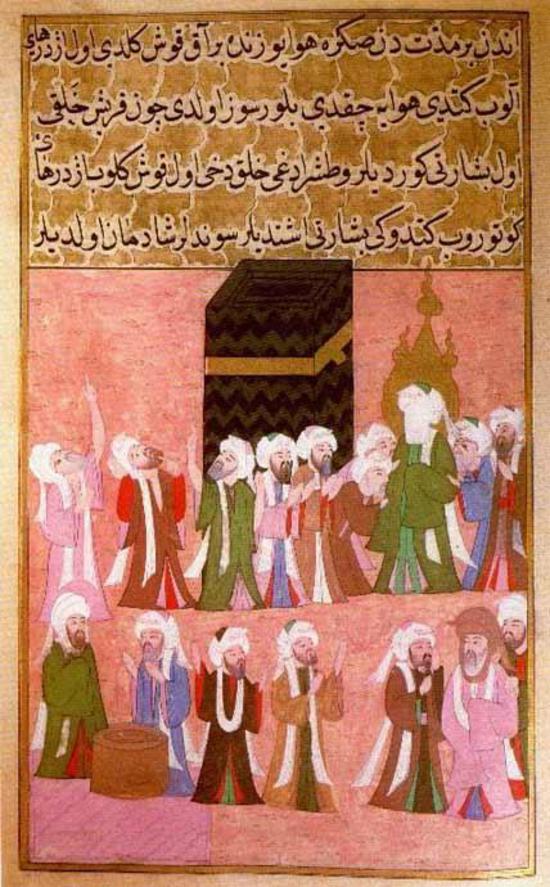 اندن بر مدت دن صکره هوا یوزنده بر آق قوش کلدی اول ازدرهای
آلوب کتدی هوایه چقدی بلورسوز اولدی چون قریش خلقی
اول بشارتی کوردیلر و طشراداغی خلق دخی اول قوش کلوب ازدرهای
کوتوروب کتدوکی بشارتی اشتدیلر سوندلر شادمان اولدیلر